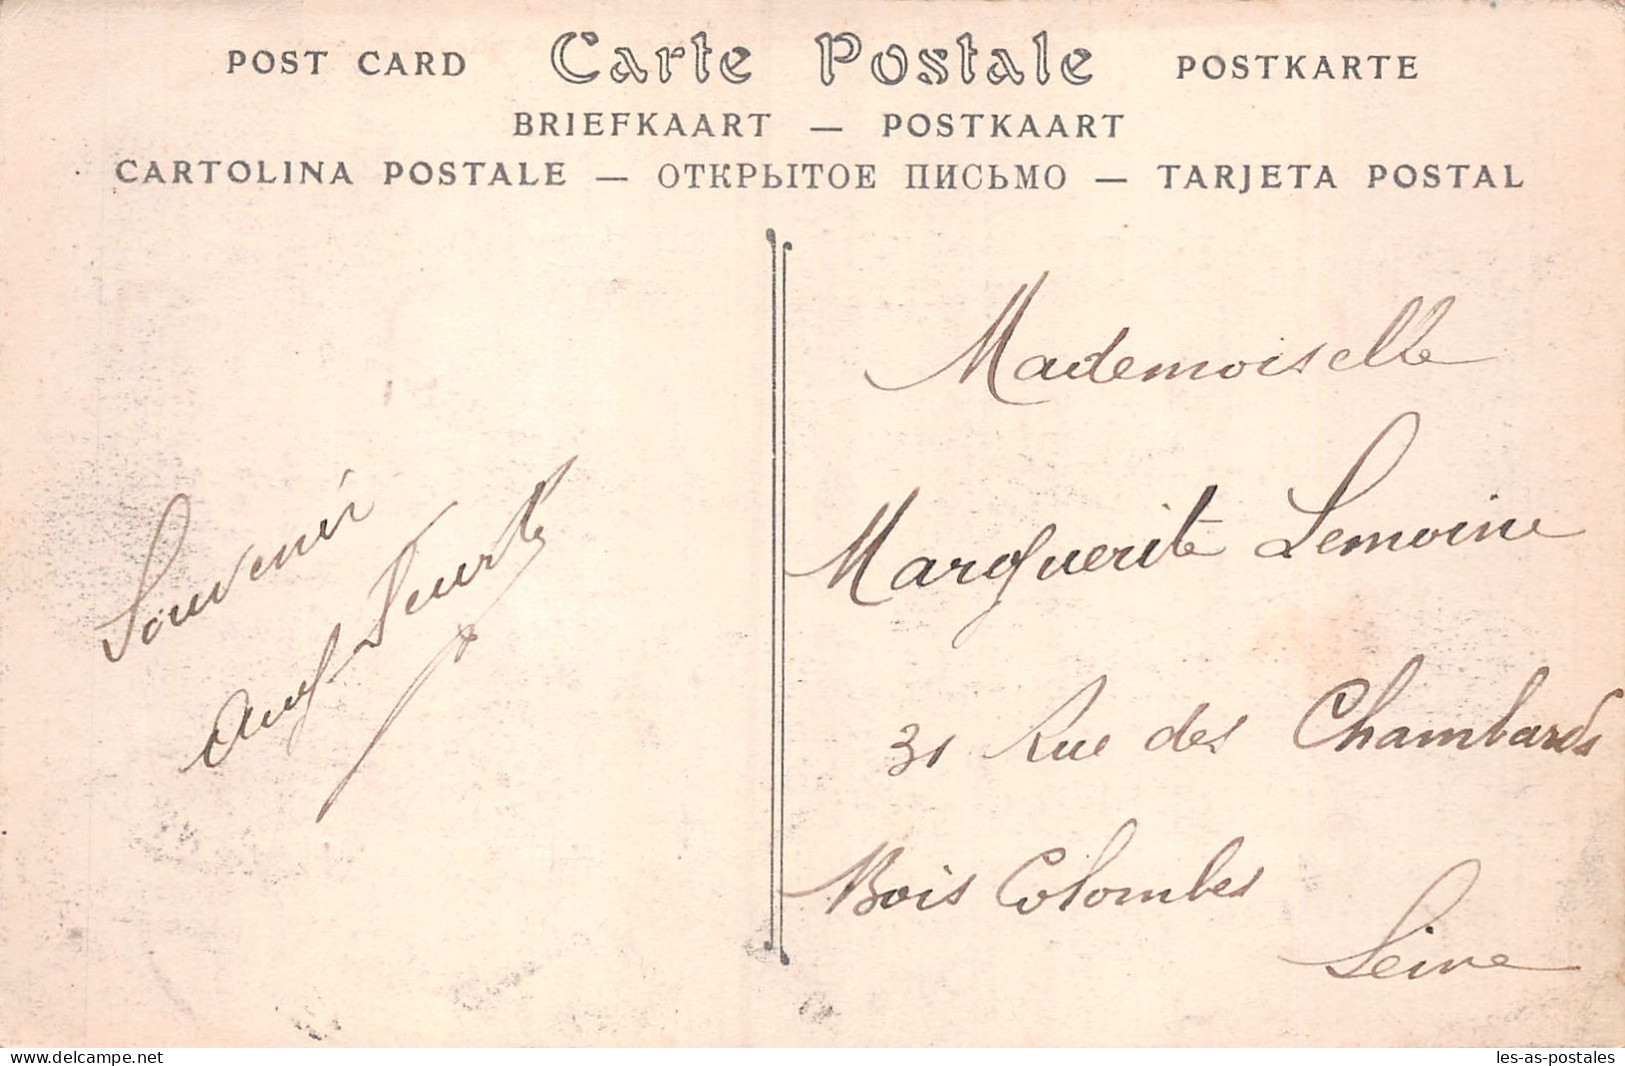 POST CARD Carte Postale POSTKARTE
BRIEFKAART — POSTKAART
CARTOLINA POSTALE — ОТКРЫТОЕ ПИСЬМО — TARJETA POSTAL
Souvenir
Mademoiselle
Marguerite Lemoine
31 Rue des Chambards
Bois Colombes
Seine
delcampe.net
les-as-postales